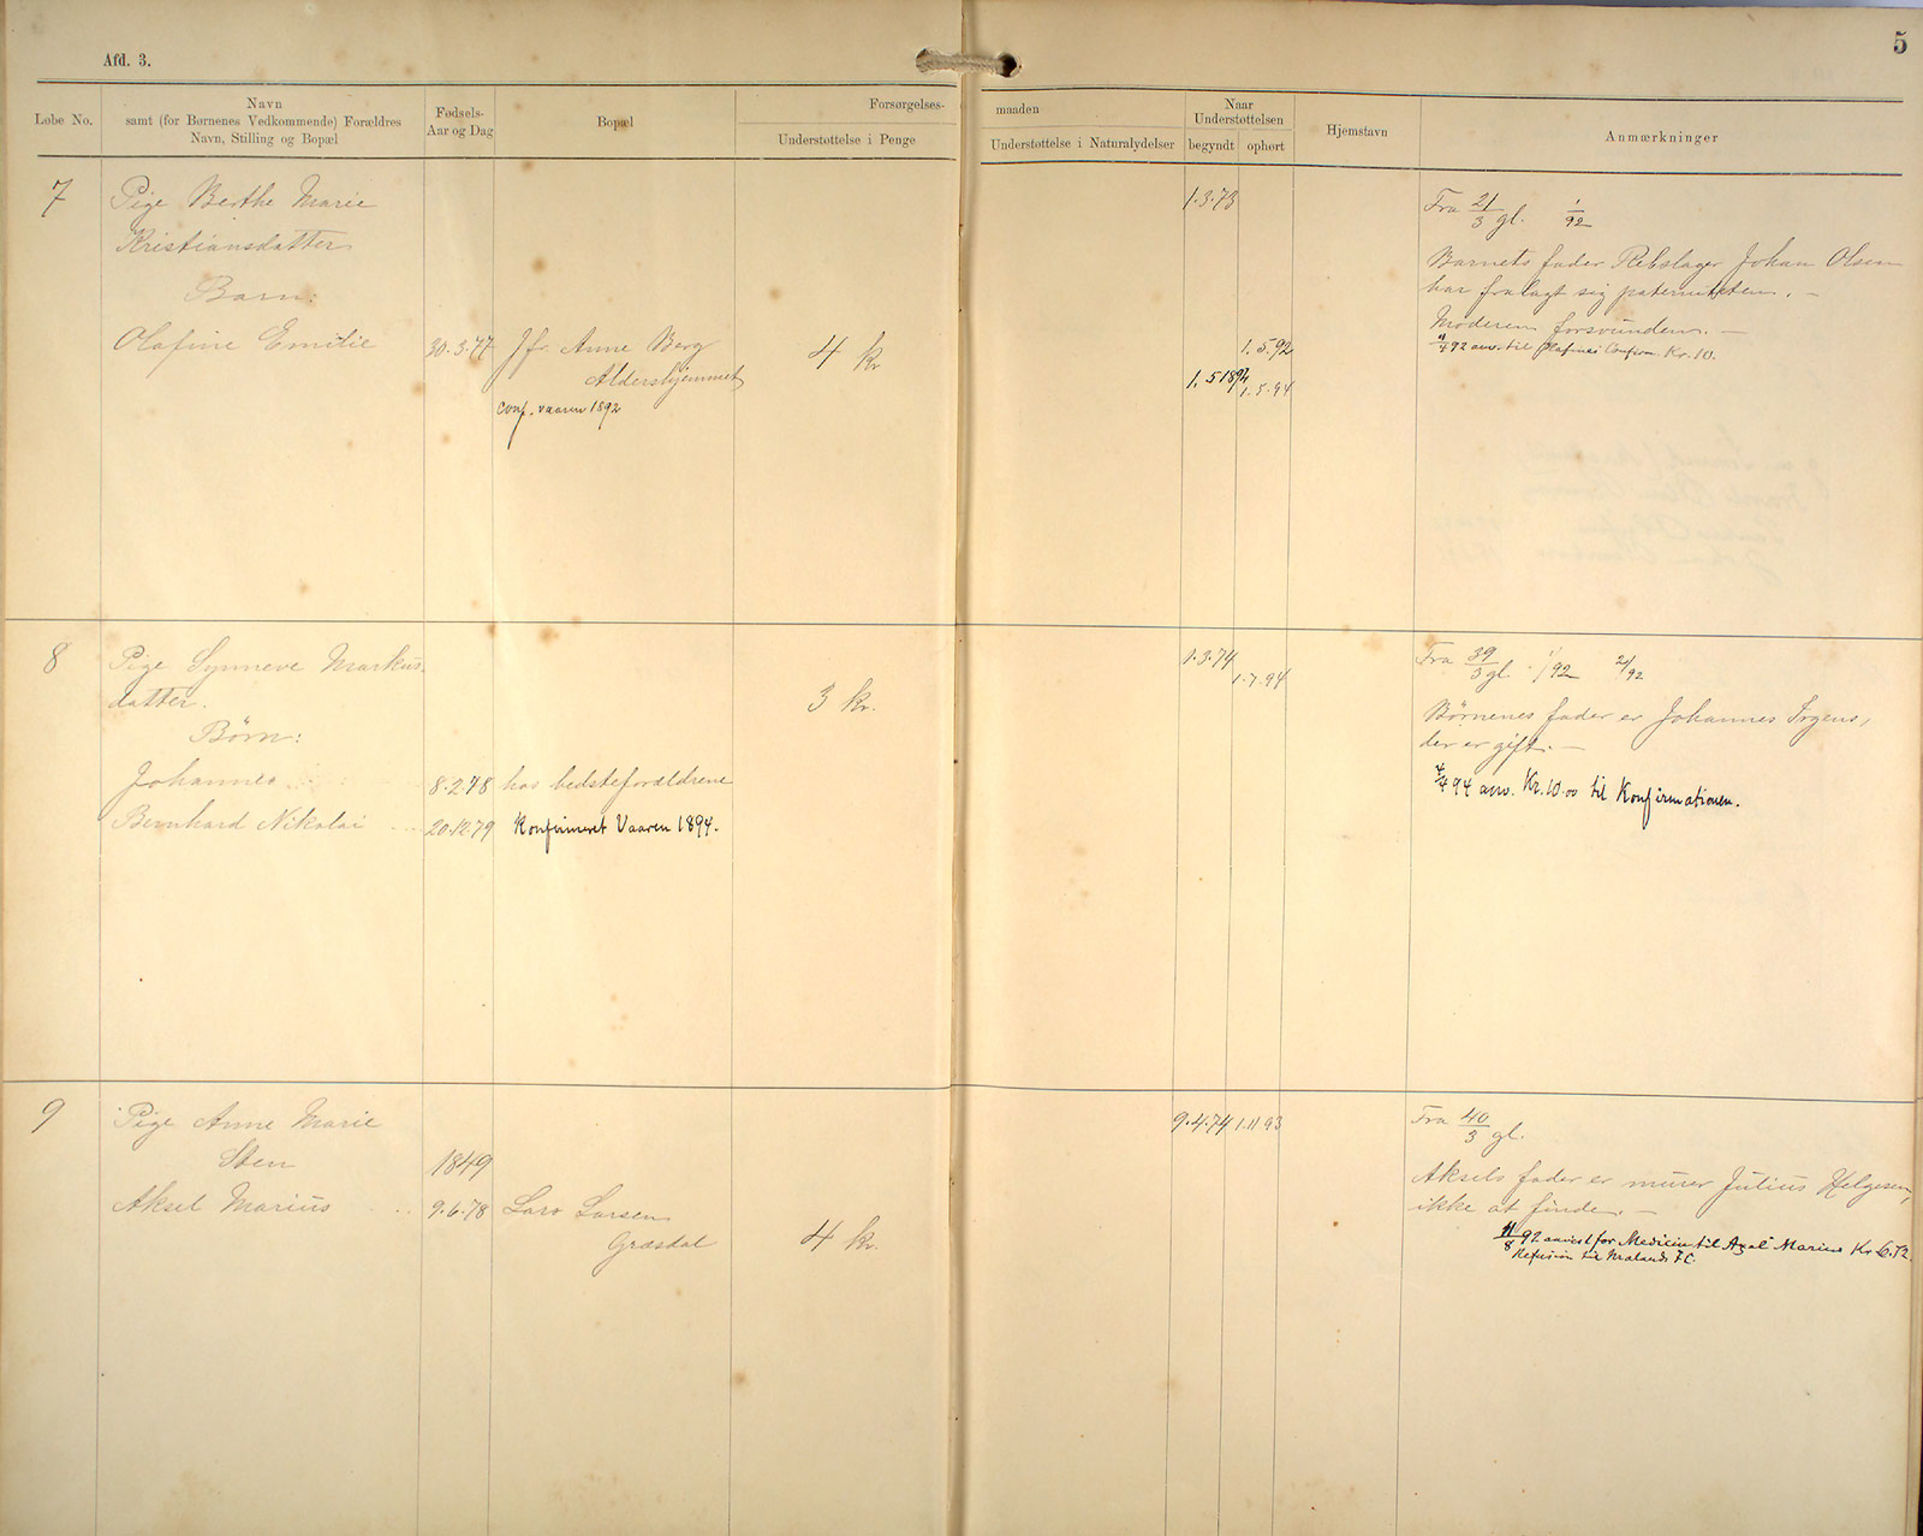 5
Afd. 3.
Løbe No.
Navn
samt (for Børnenes Vedkommende) Forældres
Navn, Stilling og Bopæl
Fødsels-
Aar og Dag
Bopæl
Forsørgelses-
Understøttelse i Penge
maaden
Understøttelse i Naturalydelser
Naar
Understøttelsen
begyndt
ophørt
Hjemstavn
Anmærkninger
7
Pige Berthe Marie
Kristiansdatter
Barn:
Olafine Emilie
30.3.77
Jfr. Anne Berg
Aldershjemmet
Conf. vaaren 1892
4 kr
1.3.73
1.5.92
1.5 1892
1.5.94
Fra 21/3 gl. 1/92
Barnets fader Rebslager Johan Olsen
har fralagt sig paterniteten. —
Moderen forsvunden. —
4/4 92 anv. til Olafines Confirm. Kr. 10.
8
Pige Synneve Markus-
datter.
Børn:
Johannes
8.2.78
hos bedsteforældrene
Bernhard Nikolai
20.12.79
Konfirmeret Vaaren 1894.
3 kr.
1.3.74
1.7.94
Fra 39/3 gl. 1/92 2/92
Børnenes fader er Johannes Irgens,
der er gift. —
4/4 94 anv. Kr. 10.00 til Konfirmationen.
9
Pige Anne Marie
Sten
1849
Aksel Marius
9.6.78
Lars Larsen
Græsdal
4 kr.
9.4.74
1.11 93
Fra 40/3 gl.
Aksels fader er murer Julius Helgesen,
ikke at finde. —
11/8 92 anvist for Medicin til Axel Marius Kr 6.72.
Refusion til F.C.